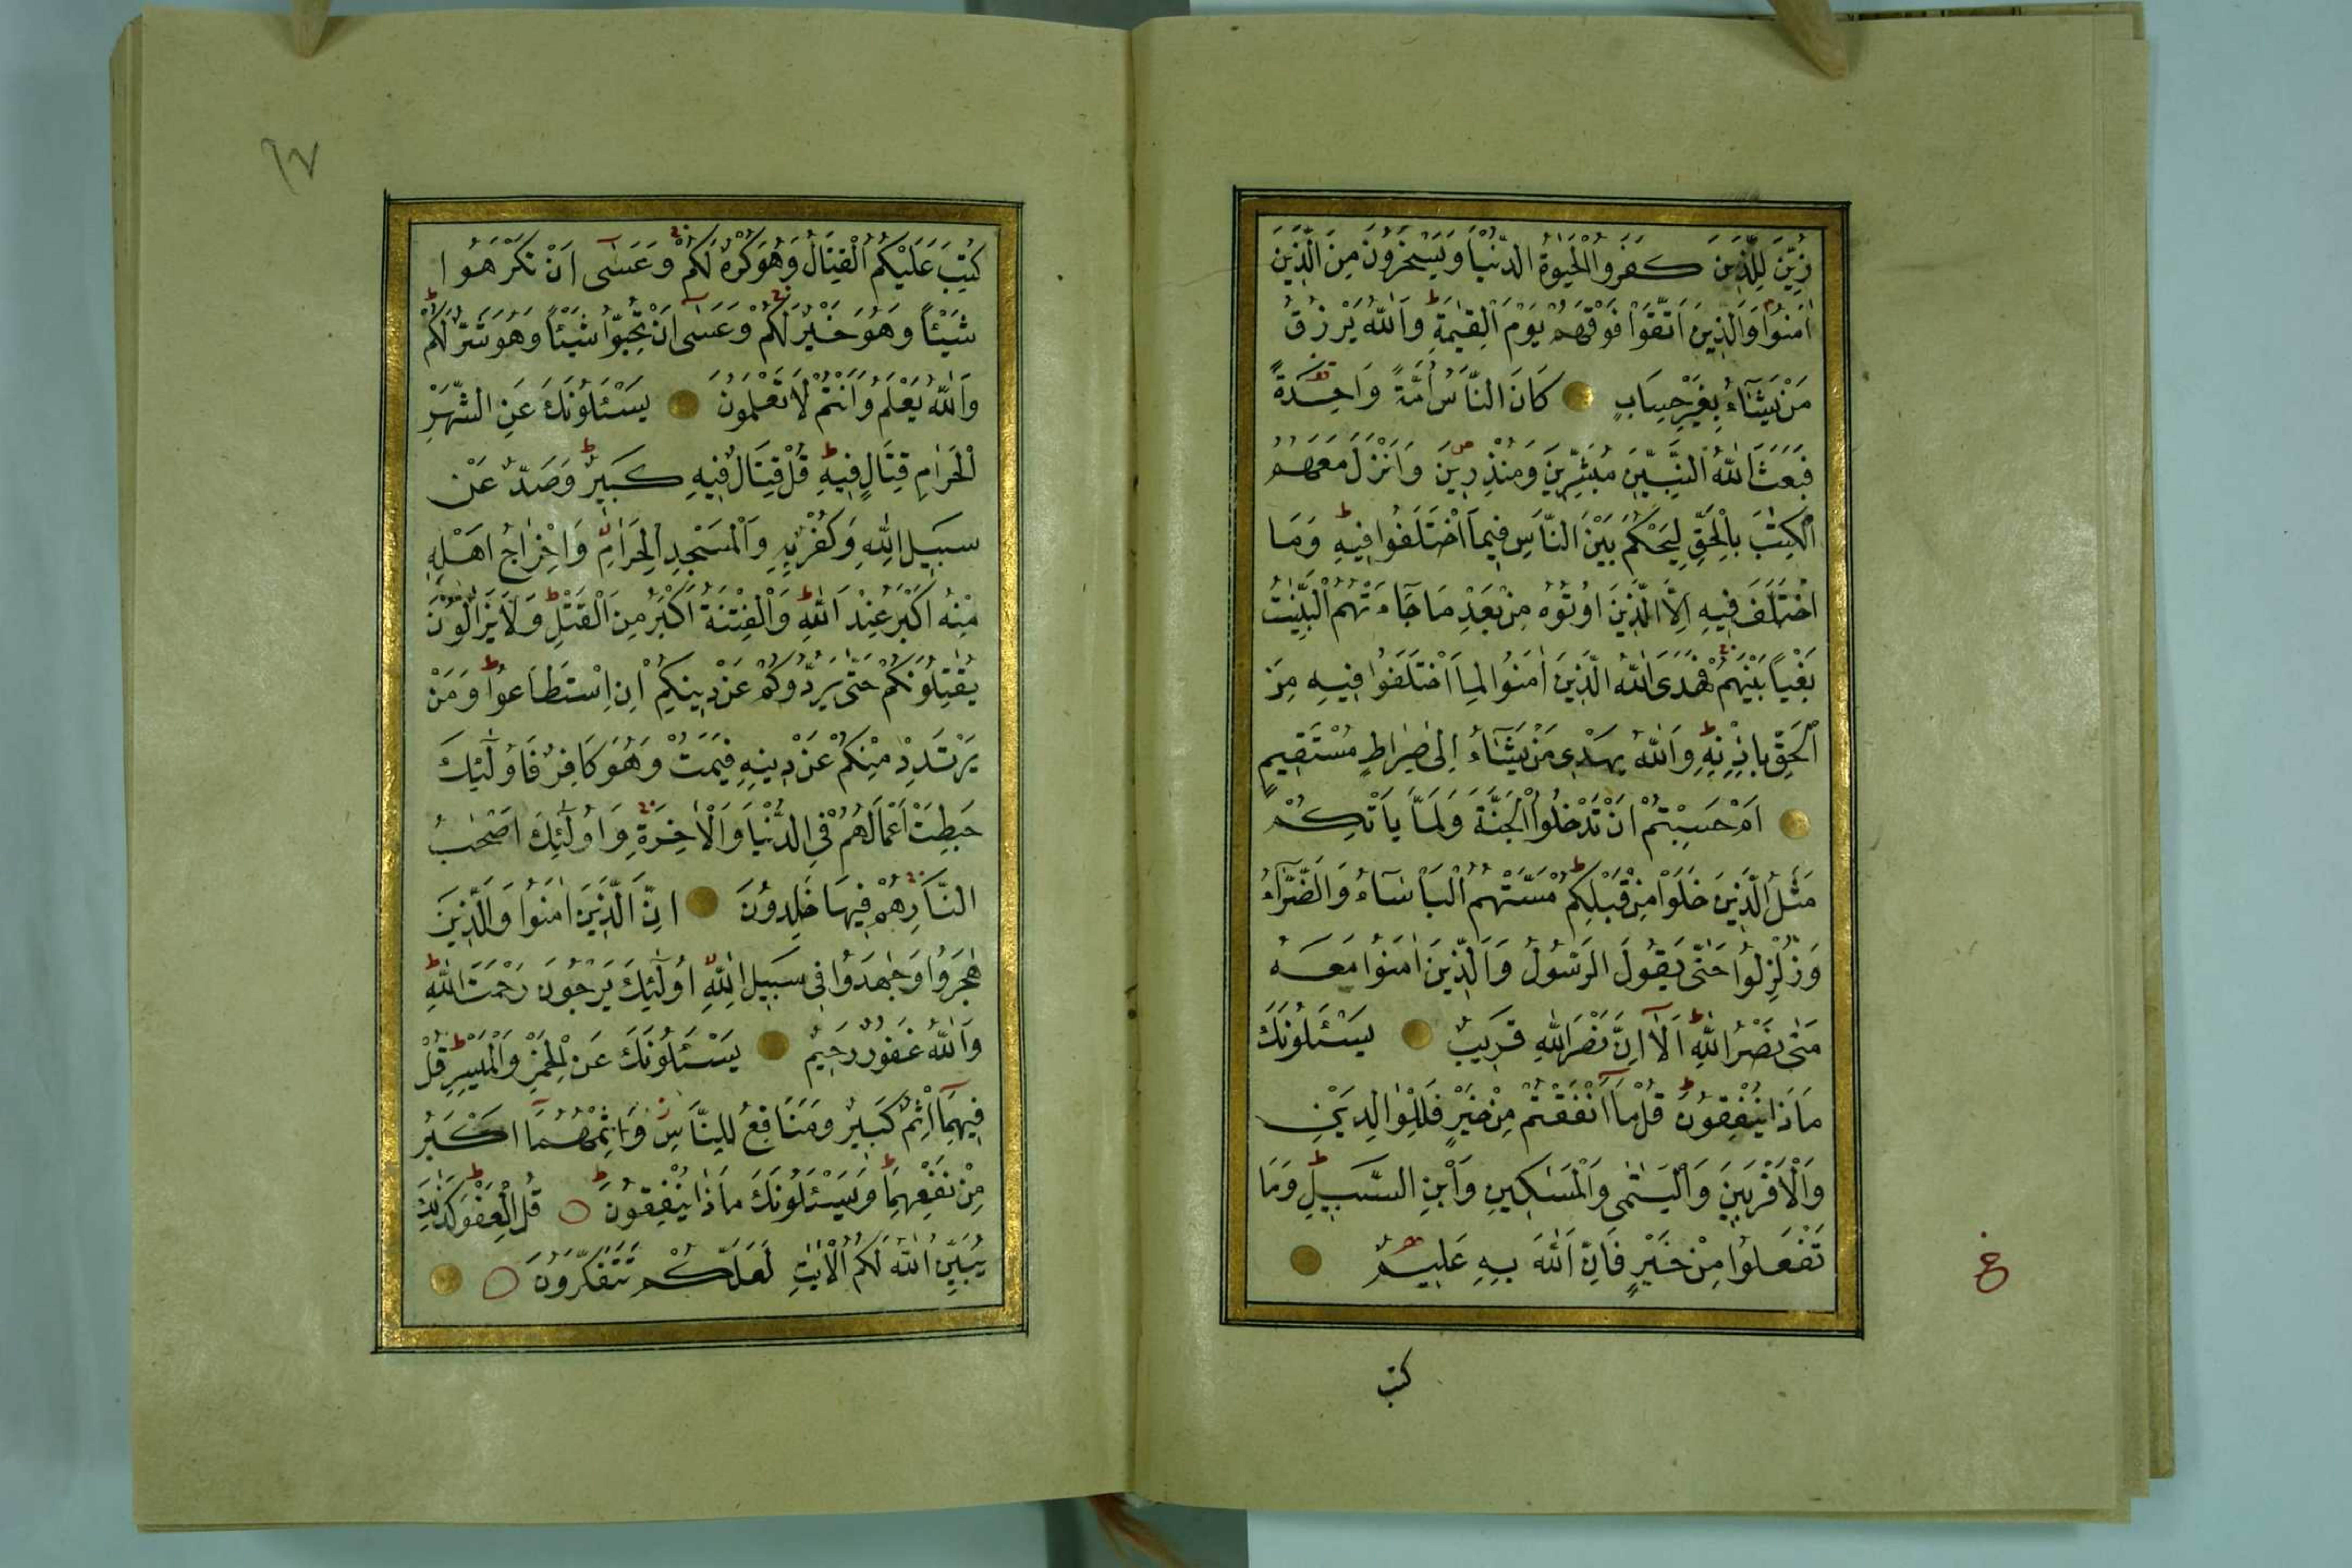 زُيِّنَ لِلَّذِينَ كَفَرُوا الْحَيٰوةُ الدُّنْيَا وَيَسْخَرُونَ مِنَ الَّذِينَ
اٰمَنُوا وَالَّذِينَ اتَّقَوْا فَوْقَهُمْ يَوْمَ الْقِيٰمَةِ ط وَاللّٰهُ يَرْزُقُ
مَنْ يَشَٓاءُ بِغَيْرِ حِسَابٍ كَانَ النَّاسُ اُمَّةً وَاحِدَةً
فَبَعَثَ اللّٰهُ النَّبِيّٖنَ مُبَشِّرِينَ وَمُنْذِرِينَ ص وَاَنْزَلَ مَعَهُمُ
الْكِتٰبَ بِالْحَقِّ لِيَحْكُمَ بَيْنَ النَّاسِ فِيمَا اخْتَلَفُوا فِيهِ ط وَمَا
اخْتَلَفَ فِيهِ اِلَّا الَّذِينَ اُوتُوهُ مِنْ بَعْدِ مَا جَٓاءَتْهُمُ الْبَيِّنٰتُ
بَغْيًا بَيْنَهُمْ فَهَدَى اللّٰهُ الَّذِينَ اٰمَنُوا لِمَا اخْتَلَفُوا فِيهِ مِنَ
الْحَقِّ بِاِذْنِهِ ط وَاللّٰهُ يَهْدِى مَنْ يَشَٓاءُ اِلٰى صِرَاطٍ مُسْتَقِيمٍ
اَمْ حَسِبْتُمْ اَنْ تَدْخُلُوا الْجَنَّةَ وَلَمَّا يَأْتِكُمْ
مَثَلُ الَّذِينَ خَلَوْا مِنْ قَبْلِكُمْ ط مَسَّتْهُمُ الْبَأْسَٓاءُ وَالضَّرَّٓاءُ
وَزُلْزِلُوا حَتّٰى يَقُولَ الرَّسُولُ وَالَّذِينَ اٰمَنُوا مَعَهُ
مَتٰى نَصْرُ اللّٰهِ ط اَلَٓا اِنَّ نَصْرَ اللّٰهِ قَرِيبٌ يَسْـَٔلُونَكَ
مَاذَا يُنْفِقُونَ ط قُلْ مَٓا اَنْفَقْتُمْ مِنْ خَيْرٍ فَلِلْوَالِدَيْنِ
وَالْاَقْرَبِينَ وَالْيَتٰمٰى وَالْمَسَاكِينِ وَابْنِ السَّبِيلِ ط وَمَا
تَفْعَلُوا مِنْ خَيْرٍ فَاِنَّ اللّٰهَ بِهِ عَلِيمٌ
كتب
٦٧
كُتِبَ عَلَيْكُمُ الْقِتَالُ وَهُوَ كُرْهٌ لَكُمْ وَعَسٰٓى اَنْ تَكْرَهُوا
شَيْئًا وَهُوَ خَيْرٌ لَكُمْ وَعَسٰٓى اَنْ تُحِبُّوا شَيْئًا وَهُوَ شَرٌّ لَكُمْ ط
وَاللّٰهُ يَعْلَمُ وَاَنْتُمْ لَا تَعْلَمُونَ يَسْـَٔلُونَكَ عَنِ الشَّهْرِ
الْحَرَامِ قِتَالٍ فِيهِ ط قُلْ قِتَالٌ فِيهِ كَبِيرٌ ط وَصَدٌّ عَنْ
سَبِيلِ اللّٰهِ وَكُفْرٌ بِهِ وَالْمَسْجِدِ الْحَرَامِ وَاِخْرَاجُ اَهْلِهِ
مِنْهُ اَكْبَرُ عِنْدَ اللّٰهِ ط وَالْفِتْنَةُ اَكْبَرُ مِنَ الْقَتْلِ ط وَلَا يَزَالُونَ
يُقَاتِلُونَكُمْ حَتّٰى يَرُدُّوكُمْ عَنْ دِينِكُمْ اِنِ اسْتَطَاعُوا ط وَمَنْ
يَرْتَدِدْ مِنْكُمْ عَنْ دِينِهِ فَيَمُتْ وَهُوَ كَافِرٌ فَاُولٰٓئِكَ
حَبِطَتْ اَعْمَالُهُمْ فِى الدُّنْيَا وَالْاٰخِرَةِ وَاُولٰٓئِكَ اَصْحٰبُ
النَّارِ هُمْ فِيهَا خٰلِدُونَ اِنَّ الَّذِينَ اٰمَنُوا وَالَّذِينَ
هٰجَرُوا وَجٰهَدُوا فِى سَبِيلِ اللّٰهِ اُولٰٓئِكَ يَرْجُونَ رَحْمَتَ اللّٰهِ ط
وَاللّٰهُ غَفُورٌ رَحِيمٌ يَسْـَٔلُونَكَ عَنِ الْخَمْرِ وَالْمَيْسِرِ ط قُلْ
فِيهِمَٓا اِثْمٌ كَبِيرٌ وَمَنَافِعُ لِلنَّاسِ ز وَاِثْمُهُمَٓا اَكْبَرُ
مِنْ نَفْعِهِمَا ط وَيَسْـَٔلُونَكَ مَاذَا يُنْفِقُونَ ط قُلِ الْعَفْوَ ط كَذٰلِكَ
يُبَيِّنُ اللّٰهُ لَكُمُ الْاٰيٰتِ لَعَلَّكُمْ تَتَفَكَّرُونَ